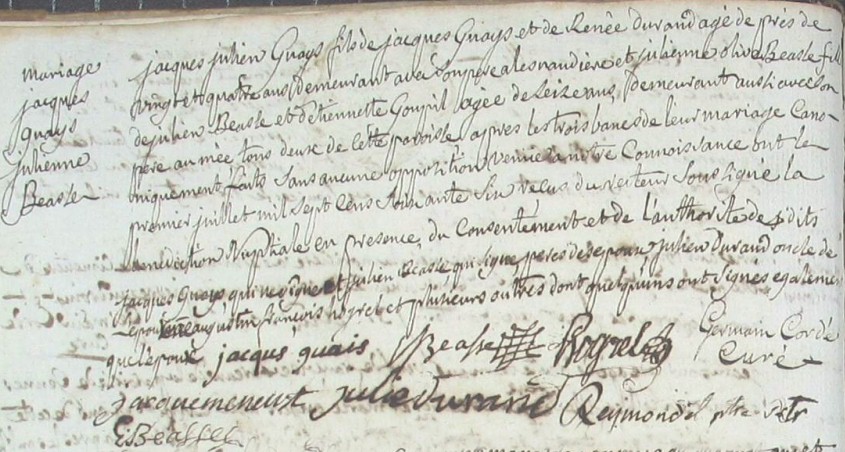 mariage
jacques
guays
julienne
Beasle
jacques julien Guays fils de jacques Guays et de Renée durand agé de près de
vingt et quatre ans demeurant avec son pere a les naudière et julienne olive Beasle fille
de julien Beasle et d'etiennette Goupil agée de seize ans, demeurant aussi avec son
pere au mée tous deux de cette paroisse apres les trois bancs de leur mariage Cano-
niquement faits sans aucune opposition venüe a notre Connoissance ont le
premier juillet mil sept cens soixante six reçus du recteur soussigné la
benediction Nuptiale en presence, du Consentement et de l'authorité de dits
jacques Guays qui ne signe et julien Beasle qui signe peres des epoux, julien Durand oncle de
l'epoux augustin françois hogrel et plusieurs autres dont quelqu'uns ont signés egalement
que l'epoux jacques guais JBeasle hogrel Germain Cordé
Curé
jacquemeneust julie durand Reymond ptre
E:Beassel